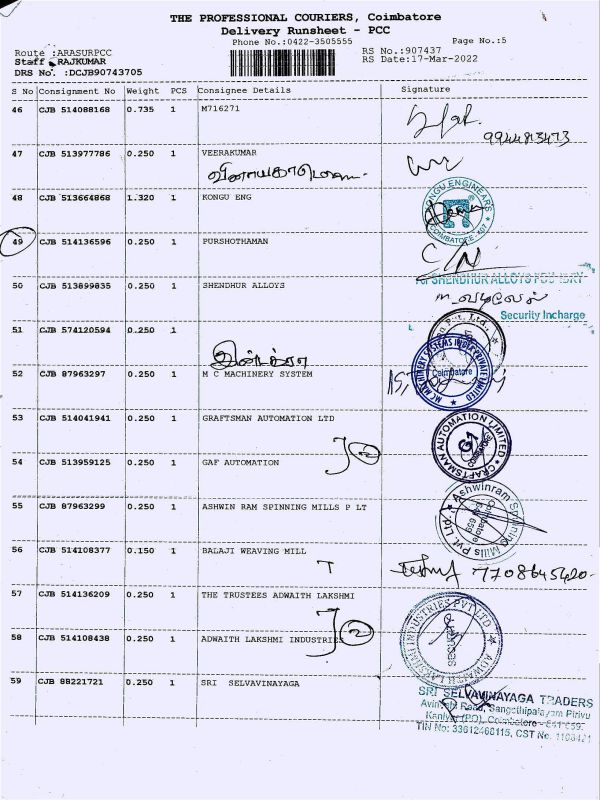 THE PROFESSIONAL COURIERS, Coimbatore
Delivery Runsheet - PCC
Phone No.:0422-3505555 Page No.:5
Route :ARASURPCC RS No.:907437
Staff RAJKUMAR RS Date:17-Mar-2022
DRS No. :DCJB90743705
S No Consignment No Weight PCS Consignee Details Signature
46 CJB 514088168 0.735 1 M716271
9944813473
47 CJB 513977786 0.250 1 VEERAKUMAR
48 CJB 513664868 1.320 1 KONGU ENG
KONGU ENGINEARS
COIMBATORE
49 CJB 514136596 0.250 1 PURSHOTHAMAN
50 CJB 513899835 0.250 1 SHENDHUR ALLOYS
SHENDHUR ALLOYS FOUNDRY
Security Incharge
51 CJB 574120594 0.250 1
52 CJB 87963297 0.250 1 M C MACHINERY SYSTEM
MC MACHINERY SYSTEMS INDIA PRIVATE LIMITED
Coimbatore
53 CJB 514041941 0.250 1 GRAFTSMAN AUTOMATION LTD
CRAFTSMAN AUTOMATION LIMITED
54 CJB 513959125 0.250 1 GAF AUTOMATION
55 CJB 87963299 0.250 1 ASHWIN RAM SPINNING MILLS P LT
Ashwinram Spinning Mills Pvt. Ltd.
56 CJB 514108377 0.150 1 BALAJI WEAVING MILL
T 7708645420
57 CJB 514136209 0.250 1 THE TRUSTEES ADWAITH LAKSHMI
58 CJB 514108438 0.250 1 ADWAITH LAKSHMI INDUSTRIES
ADWAITH LAKSHMI INDUSTRIES PVT LTD
59 CJB 88221721 0.250 1 SRI SELVAVINAYAGA
SRI SELVAVINAYAGA TRADERS
Avinashi Road, Sangothipalayam Pirivu
Kaniyur (PO), Coimbatore - 641 659.
TIN No: 33612468115, CST No. 1108421